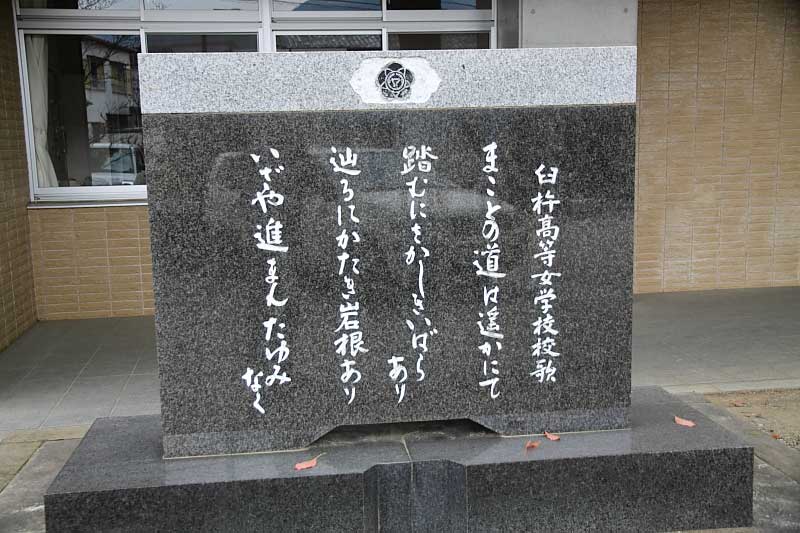 臼杵高等女学校校歌
まことの道は遥かにて
踏むにをかしきいばらあり
辿るにかたき岩根あり
いざや進まんたゆみなく